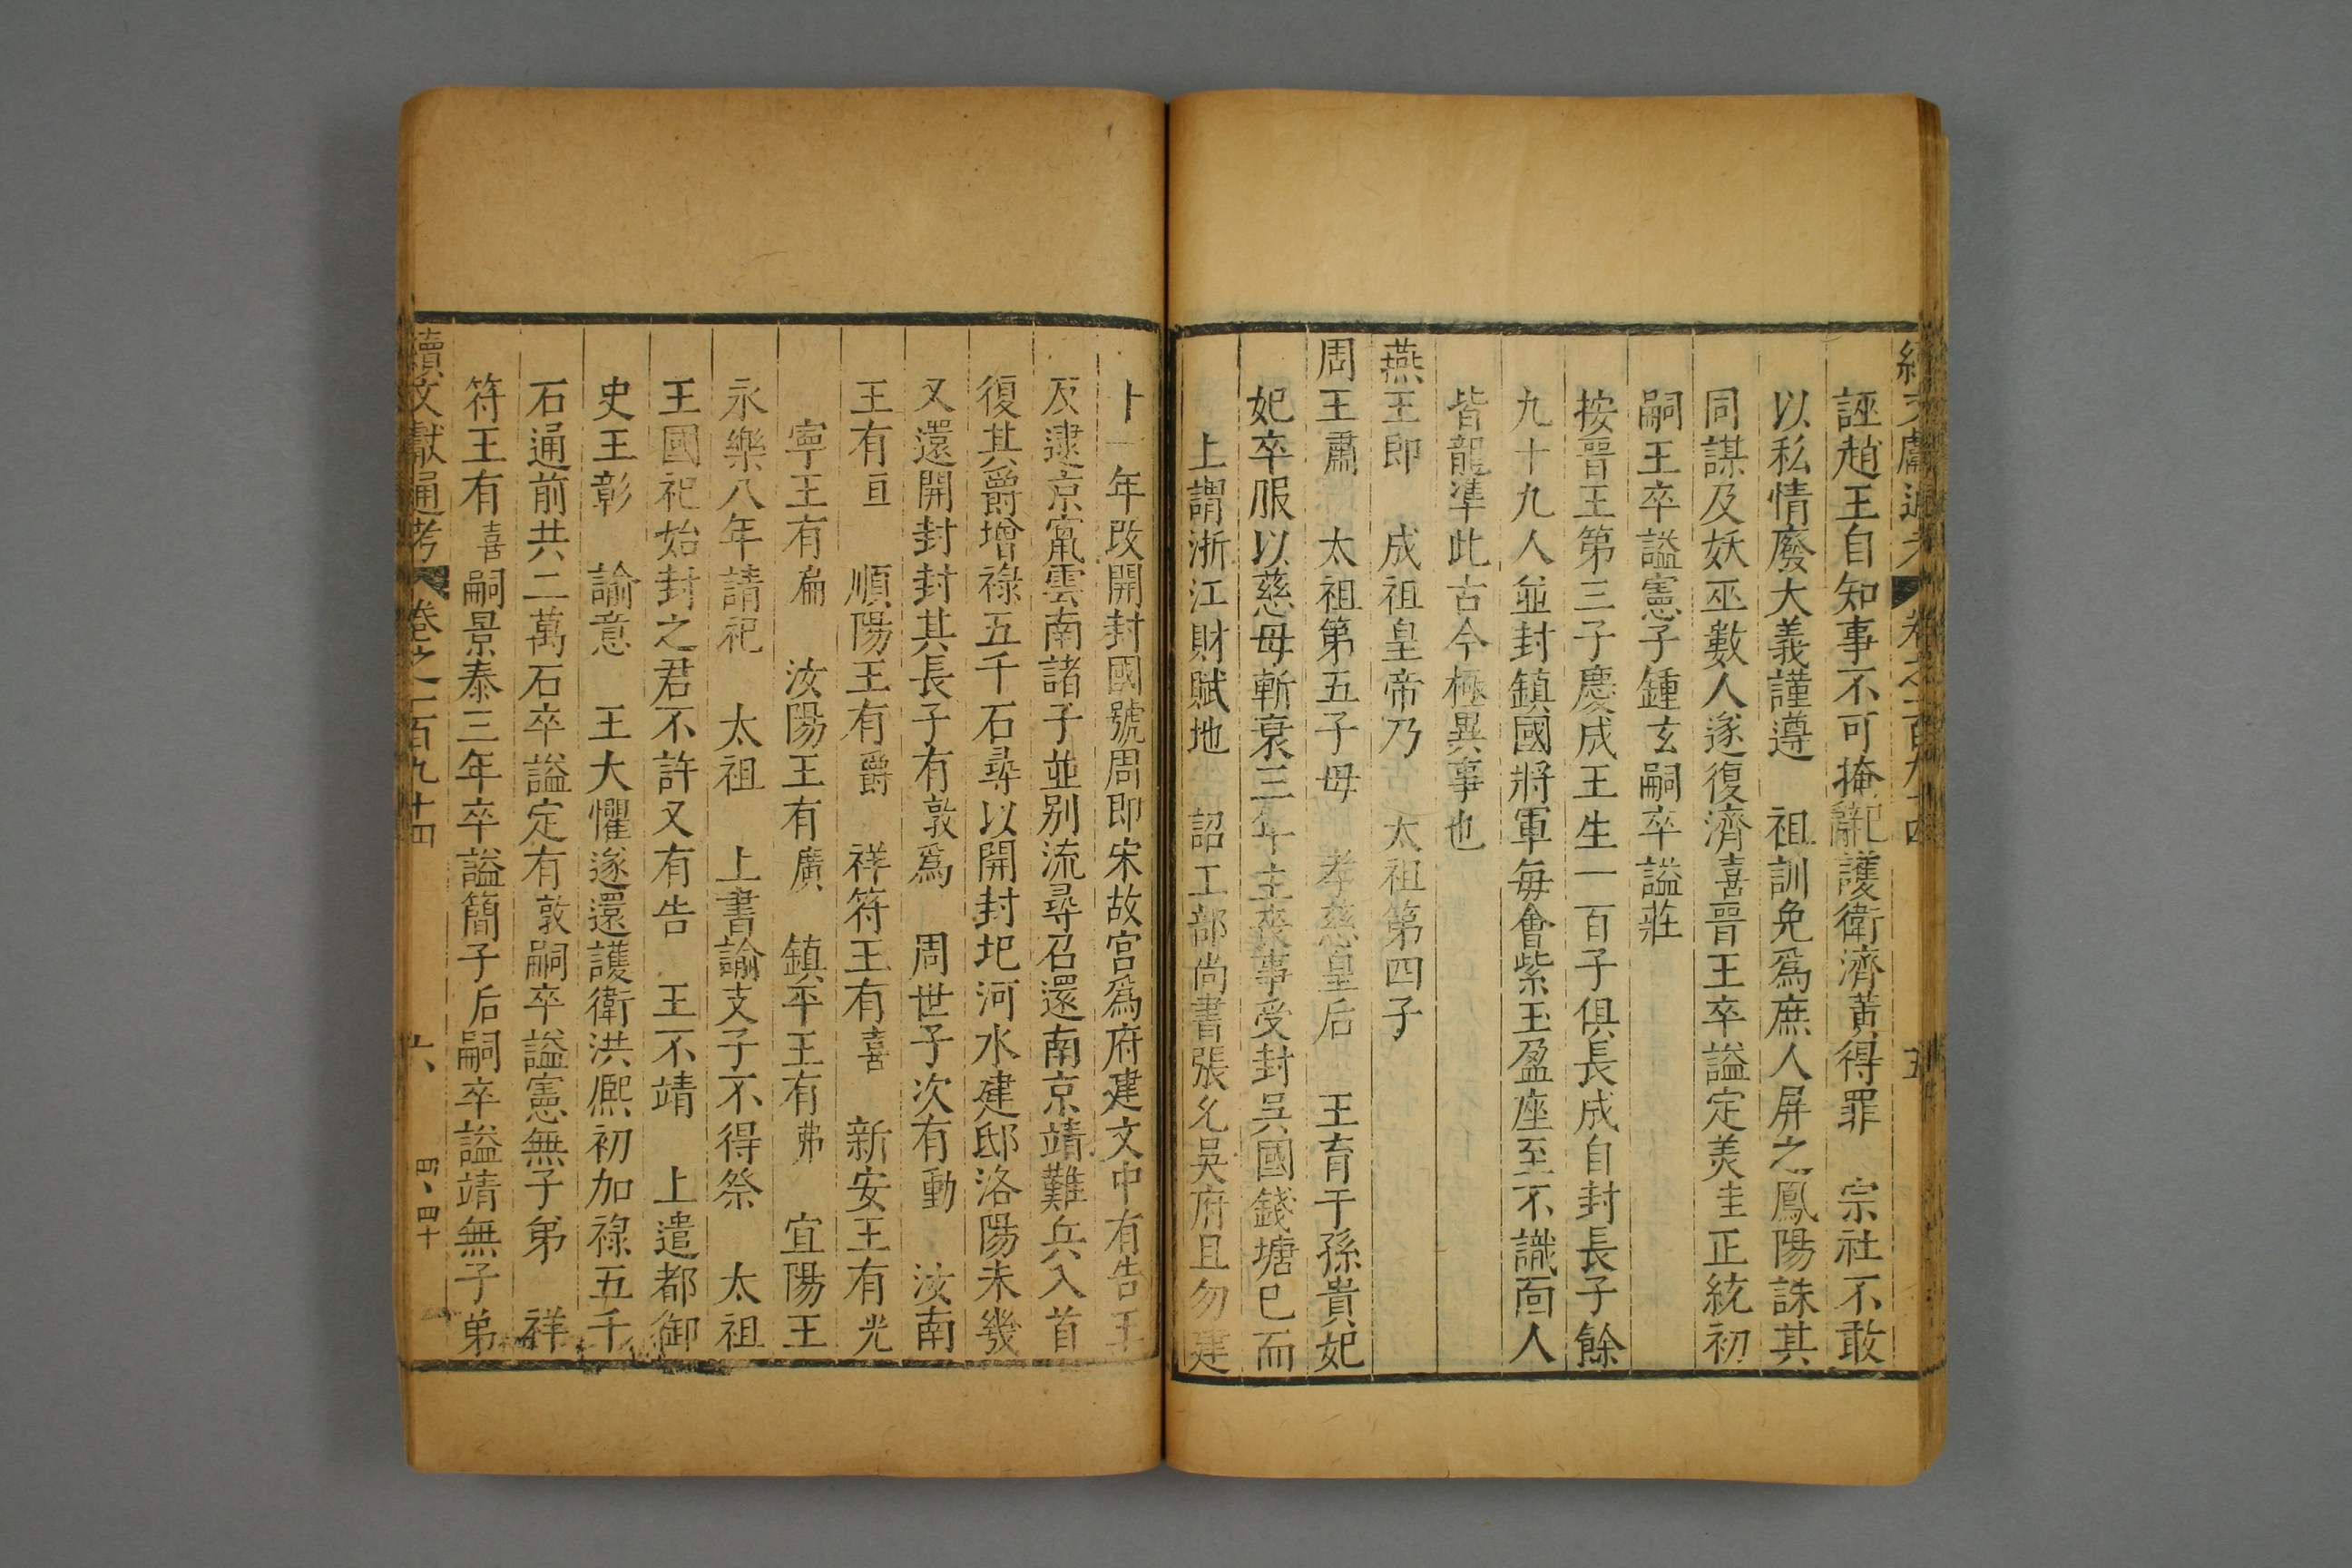 續文獻通考 卷之二百九十四 五
誣趙王自知事不可掩辭護衛濟黃得罪 宗社不敢
以私情廢大義謹遵 祖訓免爲庶人屏之鳳陽誅其
同謀及妖巫數人遂復濟喜晉王卒謚定美圭正統初
嗣王卒謚憲子鍾玄嗣卒謚莊
按晉王第三子慶成王生一百子俱長成自封長子餘
九十九人並封鎮國將軍每會紫玉盈座至不識面人
皆龍準此古今極異事也
燕王即 成祖皇帝乃 太祖第四子
周王肅 太祖第五子母 孝慈皇后 王育于孫貴妃
妃卒服以慈母斬衰三年主喪事受封吳國錢塘已而
上謂浙江財賦地 詔工部尚書張允吳府且勿建
十一年改開封國號周即宋故宮爲府建文中有告王
反逮京竄雲南諸子並別流尋召還南京靖難兵入首
復其爵增祿五千石尋以開封圮河水建邸洛陽未幾
又還開封封其長子有敦爲 周世子次有動 汝南
王有亘 順陽王有爵 祥符王有喜 新安王有光
寧王有扁 汝陽王有廣 鎮平王有弗 宜陽王
永樂八年請祀 太祖 上書諭支子不得祭 太祖
王國祀始封之君不許又有告 王不靖 上遣都御
史王彰 諭意 王大懼遂還護衛洪熙初加祿五千
石通前共二萬石卒謚定有敦嗣卒謚憲無子弟 祥
符王有喜嗣景泰三年卒謚簡子后嗣卒謚靖無子弟
續文獻通考 卷之二百九十四 六 四、四十